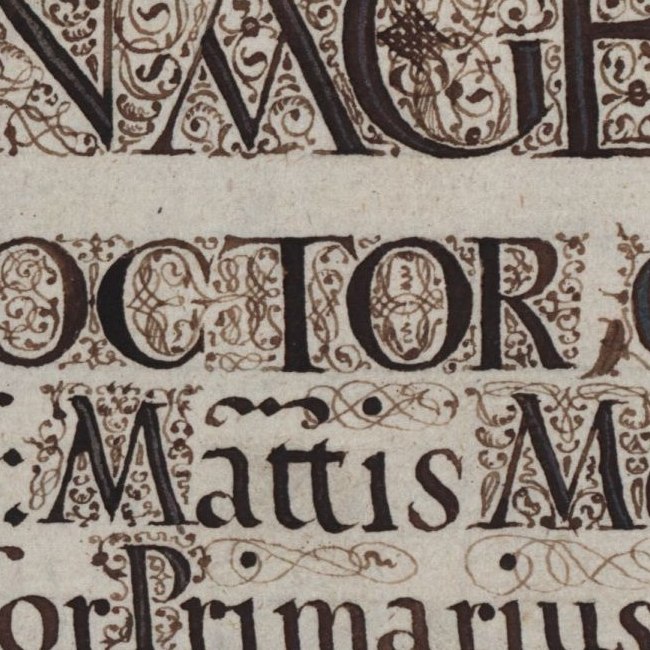 NMGE
OCTOR
: Mattis M
or Primarius